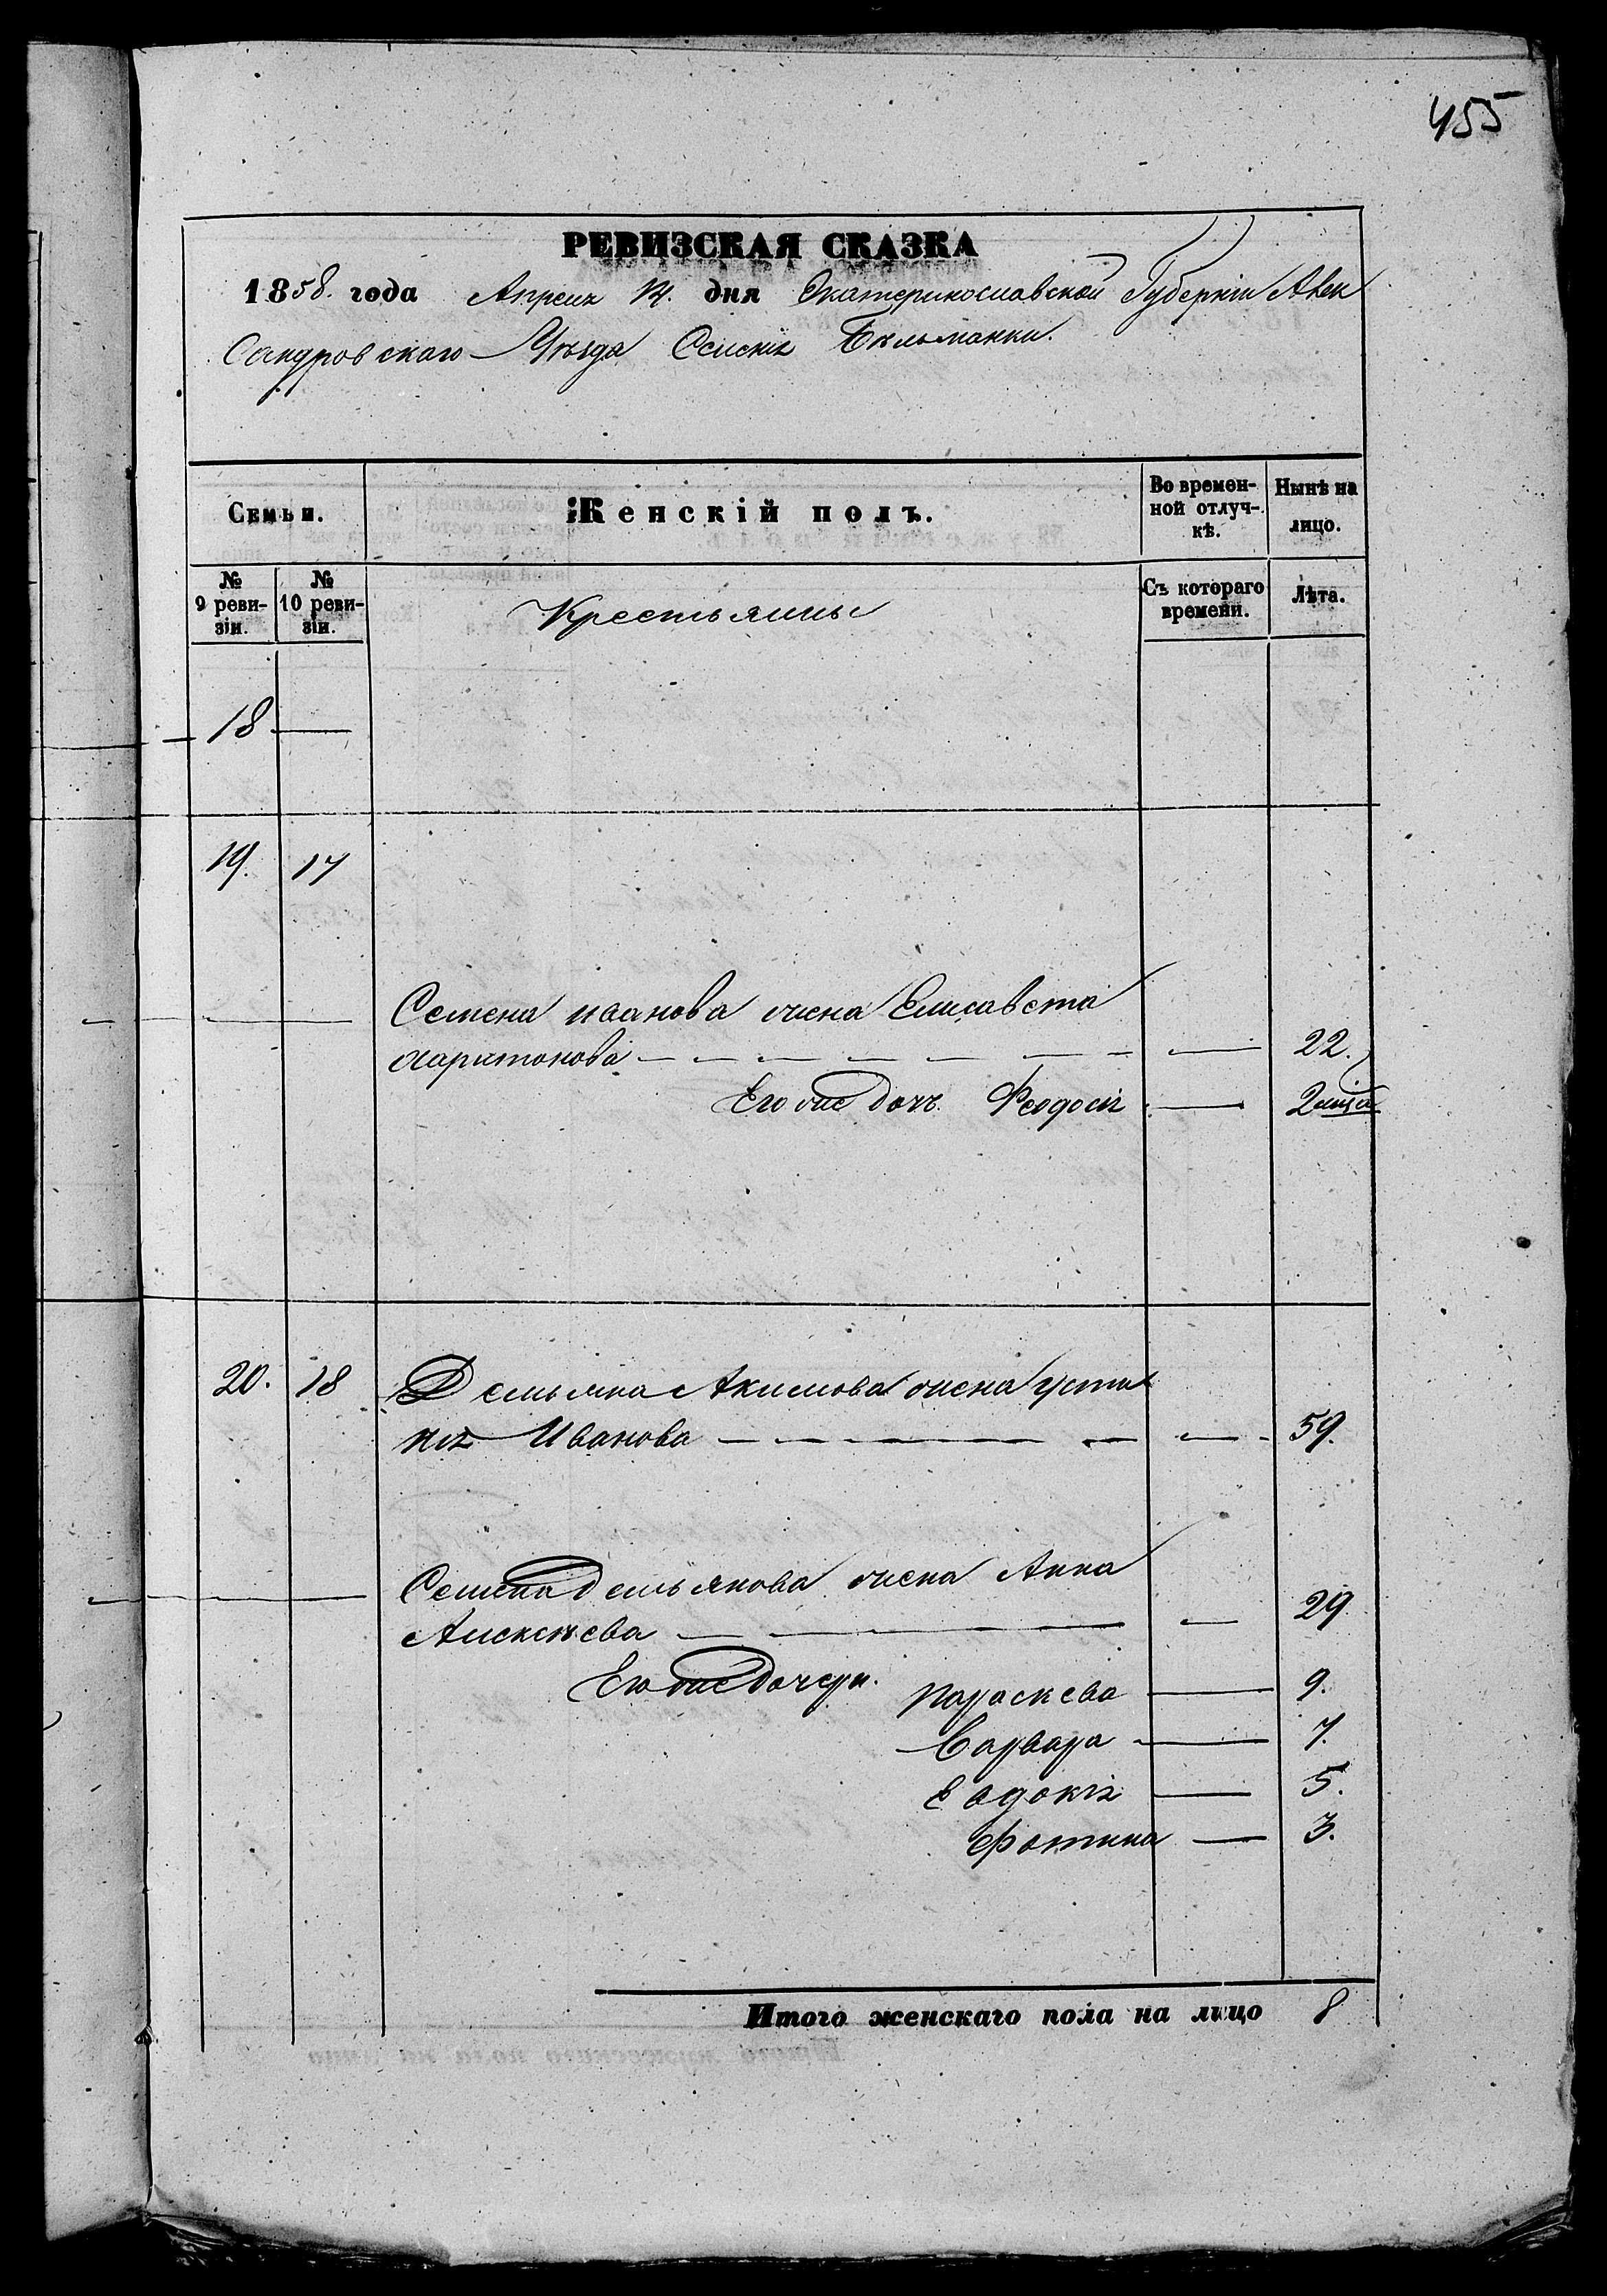 455
РЕВИЗСКАЯ СКАЗКА
1858. года Апреля 14. дня Екатеринославской Губерніи Алек
сандровскаго Уѣзда Селенія Бельманки.
Семьи.
Женскій полъ.
Во времен-
ной отлуч-
кѣ.
Нынѣ на
лицо.
№
9 реви-
зіи.
№
10 реви-
зіи.
Крестьянины
Съ котораго
времени.
Лѣта.
18 —
19. 17
Семена иванова жена Елисавета
харитонова — — — — — — — — 22.
Его же дочь Феодосія — 2 мца
20. 18 Демьяна Акимова жена усти
нія Иванова — — — — — — 59.
Семена демьянова жена Анна
Алексеева — — — — 29
Его же дочери. параскева — 9.
Варвара — 7.
Евдокія — 5.
Фотина — 3.
Итого женскаго пола на лицо 8